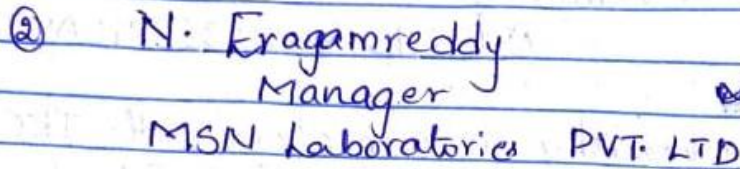 ② N. Eragamreddy
Manager
MSN Laboratories PVT. LTD